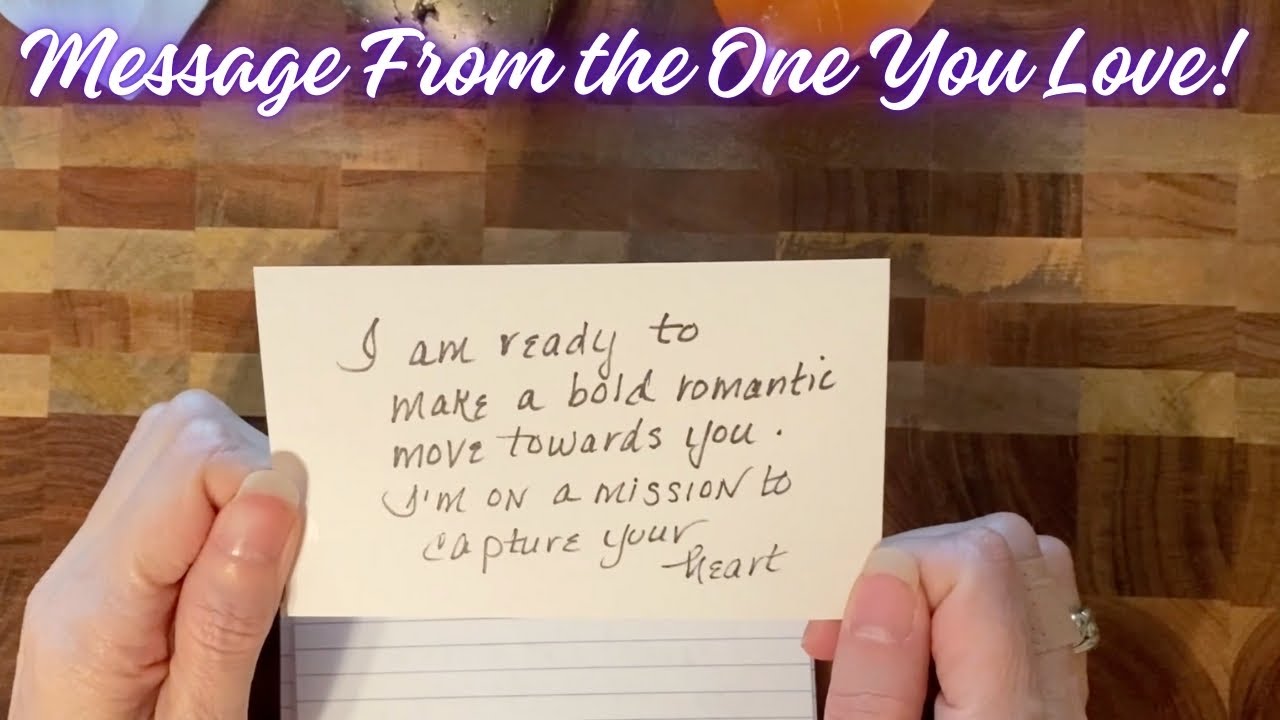 Message From the One You Love!
I am ready to
make a bold romantic
move towards you.
I'm on a mission to
capture your
heart